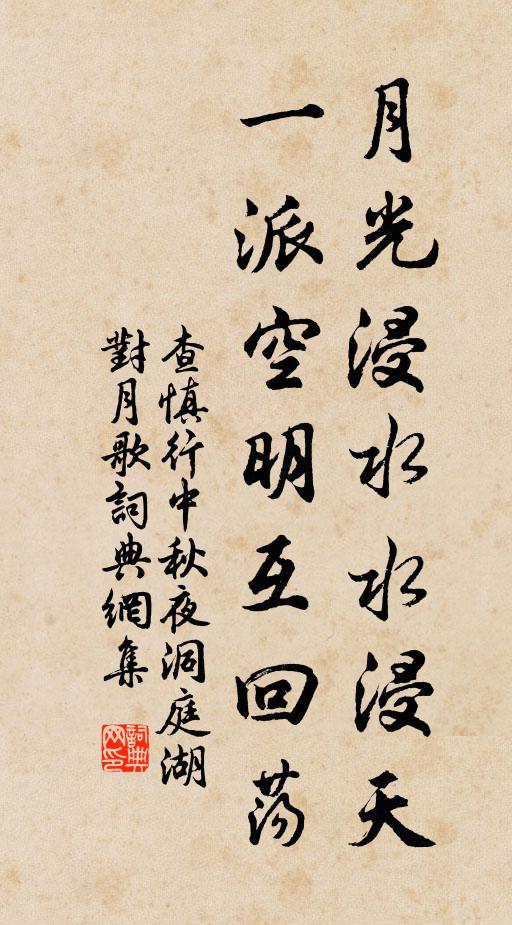 月光浸水水浸天
一派空明互回荡
查慎行中秋夜洞庭湖
對月歌詞典網集
詞典网印